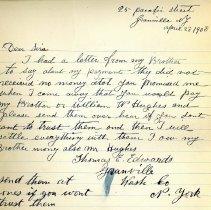 25 pacific Street
Granville NY
April 27 1908
Dear Sirs
I had a letter from my Brother
to say about my payment They did not
received no money that you Promised me
when I came away that you people pay
my Brother or William W Hughes and
please send them over here if you dont
want to trust them and then I will
settle everything with them I ow my
Brother money also Mr Hughes
Thomas E Edwards
Granville
send them at
Wash Co
ones if you wont
N. York
trust them